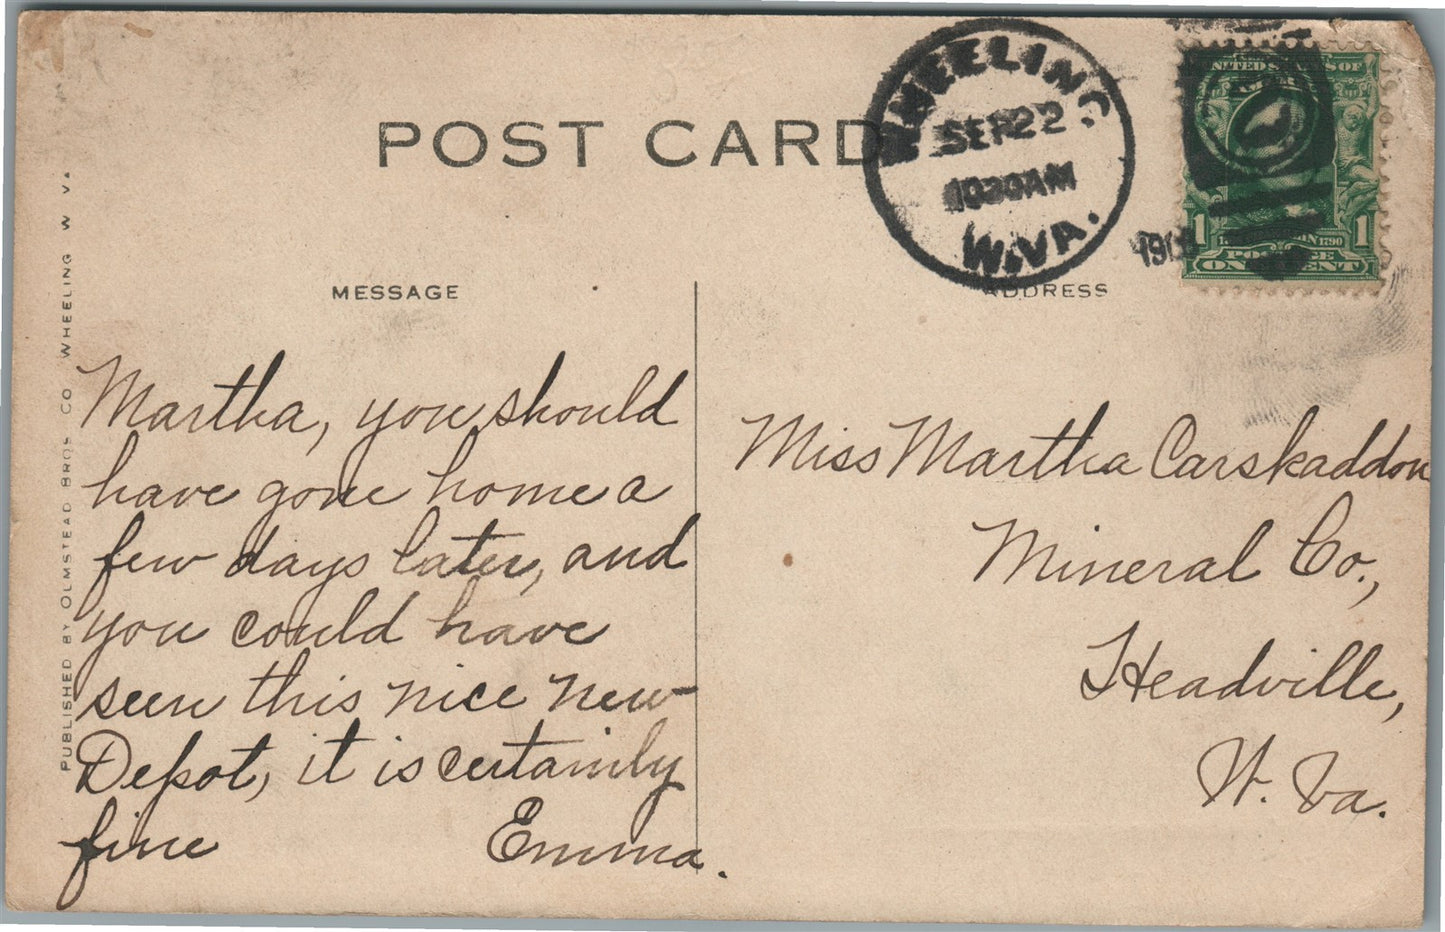 POST CARD
WHEELING
SEP 22
1030AM
W.VA.
190
UNITED STATES OF
1 1790 1
MESSAGE
ADDRESS
Martha, you should
have gone home a
few days later, and
you could have
seen this nice new
Depot, it is certainly
fine Emma.
Miss Martha Carskaddon
Mineral Co.,
Headville,
W. Va.
PUBLISHED BY OLMSTEAD BROS. CO WHEELING W VA